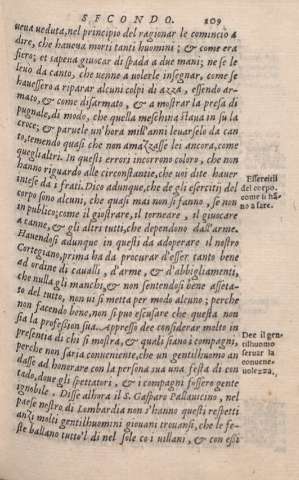 SECONDO. 109
ueva veduta, nel principio del ragionar le cominciò a
dire, che haueua morti tanti huomini; & come era
fiero; et sapeua giuocar di spada a due mani; ne se le
leuò da canto, che uenne a uolerle insegnar, come se
hauessero a riparar alcuni colpi di azza, essendo ar-
mato, & come disarmato, & a mostrar la presa di
pugnale, di modo, che quella meschina staua in su la
croce; & paruele un'hora mill'anni leuarselo da can
to, temendo quasi che non amazzasse lei ancora, come
quegli altri. In questi errori incorrono coloro, che non
hanno riguardo alle circonstantie, che uoi dite hauer
intese da i frati. Dico adunque, che de gli esercitij del
corpo sono alcuni, che quasi mai non si fanno, se non
in publico; come il giostrare, il torneare, il giuocare
a canne, & gli altri tutti, che dependono dall'arme.
Hauendosi adunque in questi da adoperare il nostro
Cortegiano, prima ha da procurar d'esser tanto bene
ad ordine di caualli, d'arme, & d'abbigliamenti,
che nulla gli manchi, & non sentendosi bene assetta-
to del tutto, non ui si metta per modo alcuno; perche
non facendo bene, non si puo escusare che questa non
sia la profession sua. Appresso dee considerar molto in
presentia di chi si mostra, & quali siano i compagni,
perche non saria conueniente, che un gentilhuomo an
dasse ad honorare con la persona sua una festa di con
tado, doue gli spettatori, & i compagni fossero gente
ignobile. Disse allhora il S. Gasparo Pallauicino, nel
paese nostro di Lombardia non s'hanno questi respetti
anzi molti gentilhuomini giouani trouansi, che le fe-
ste ballano tutto'l dì nel sole co i uillani, & con essi
Essercitij
del corpo,
come si hã-
no a fare.
Dee il gen-
tilhuomo
seruar la
conuene-
uolezza.